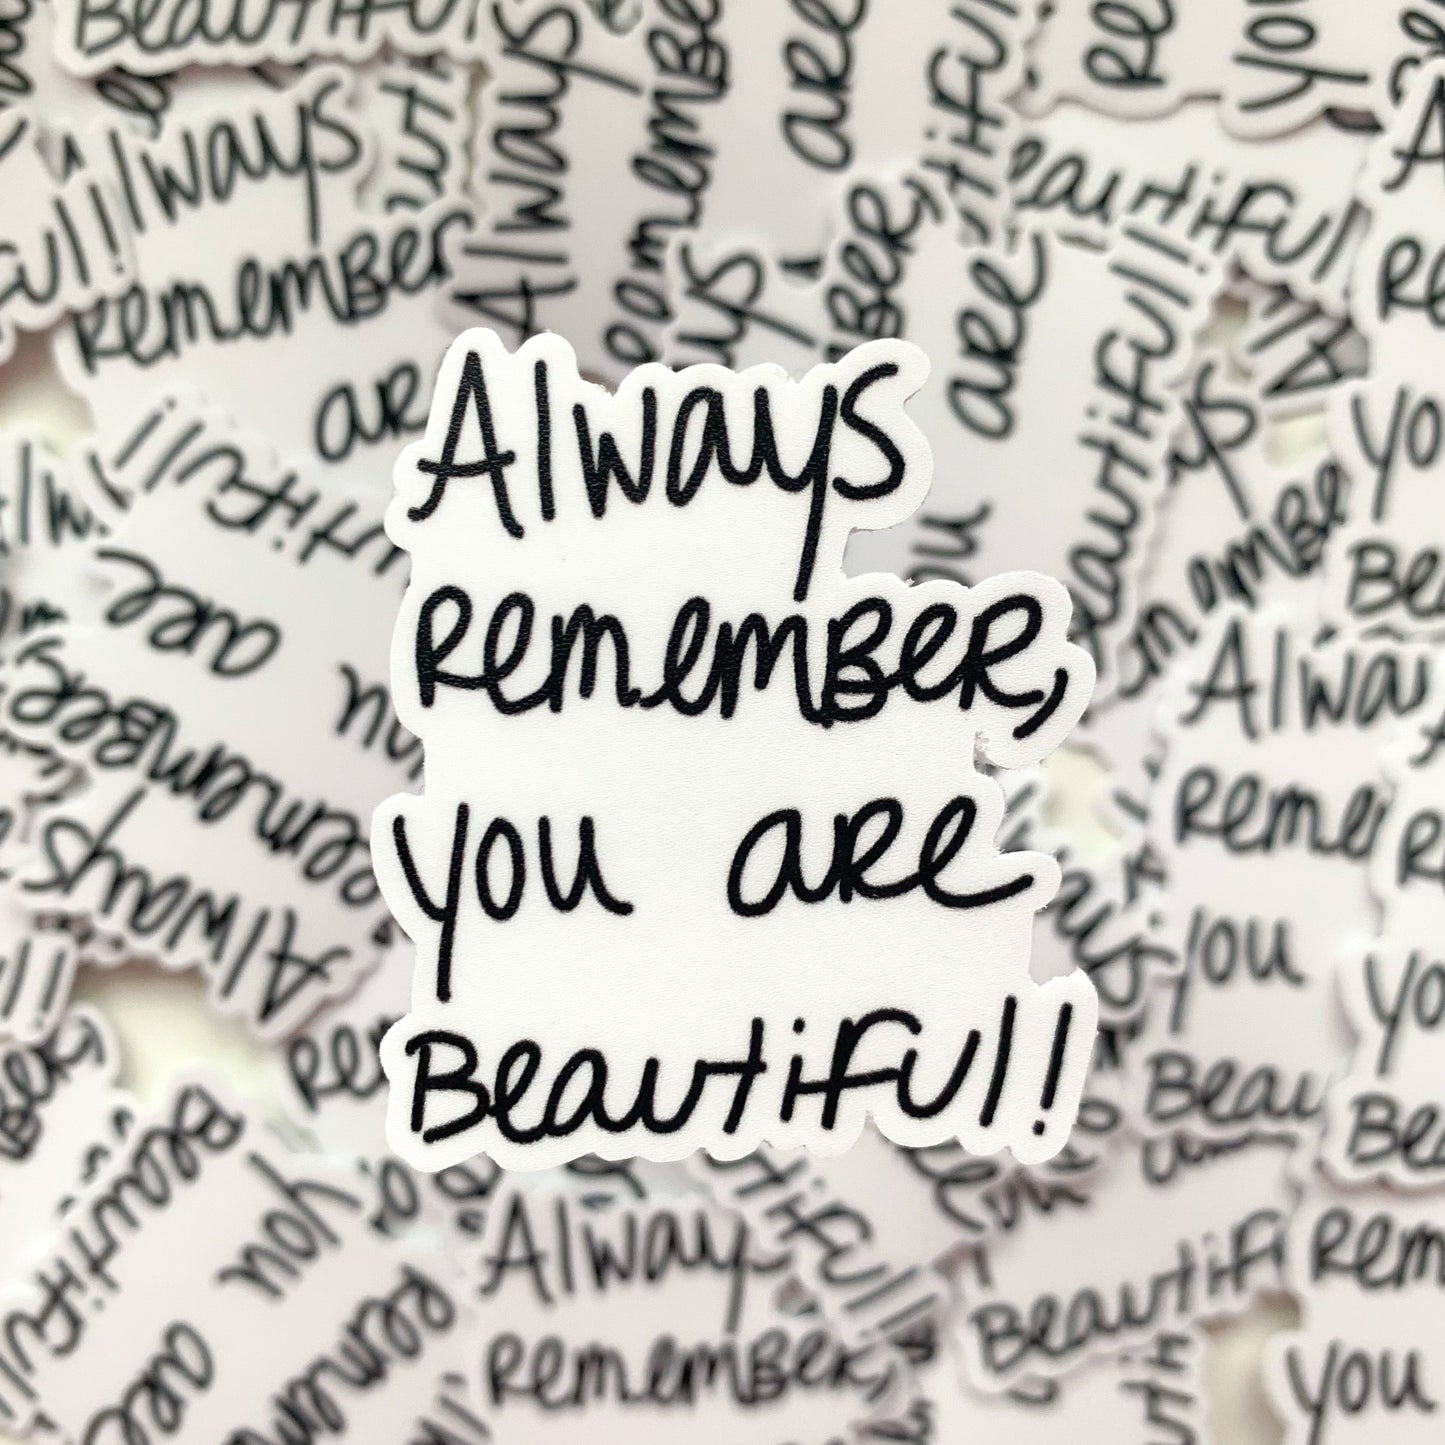 Always
remember,
you are
Beautiful!